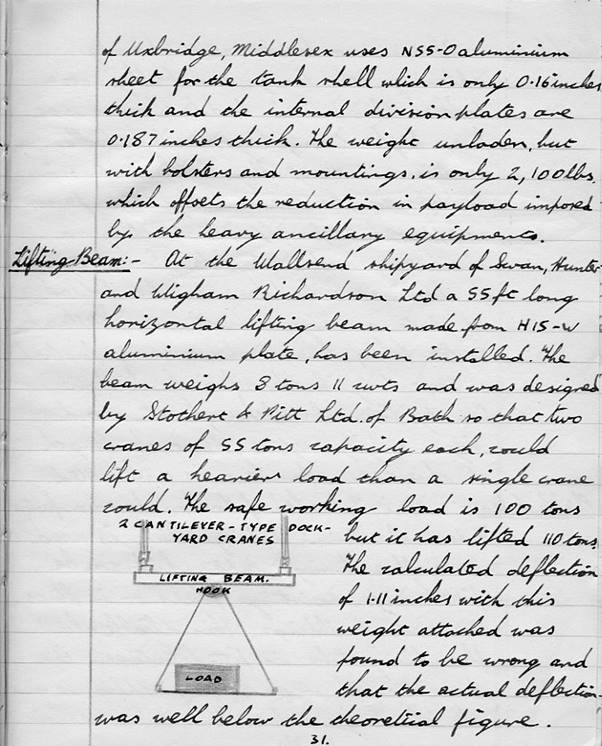 of Uxbridge, Middlesex uses NS5-O aluminium
sheet for the tank shell which is only 0.16 inches
thick and the internal division plates are
0.187 inches thick. The weight unladen, but
with bolsters and mountings, is only 2,100 lbs.
which offsets the reduction in payload imposed
by the heavy ancillary equipments.
Lifting Beam:- At the Wallsend shipyard of Swan, Hunter
and Wigham Richardson Ltd a 55ft long
horizontal lifting beam made from H15-W
aluminium plate, has been installed. The
beam weighs 3 tons 11 cwts and was designed
by Stothert & Pitt Ltd. of Bath so that two
cranes of 55 tons capacity each, could
lift a heavier load than a single crane
could. The safe working load is 100 tons
2 CANTILEVER-TYPE DOCK-
YARD CRANES
LIFTING BEAM.
HOOK
LOAD
but it has lifted 110 tons.
The calculated deflection
of 1.11 inches with this
weight attached was
found to be wrong and
that the actual deflection
was well below the theoretial figure.
31.